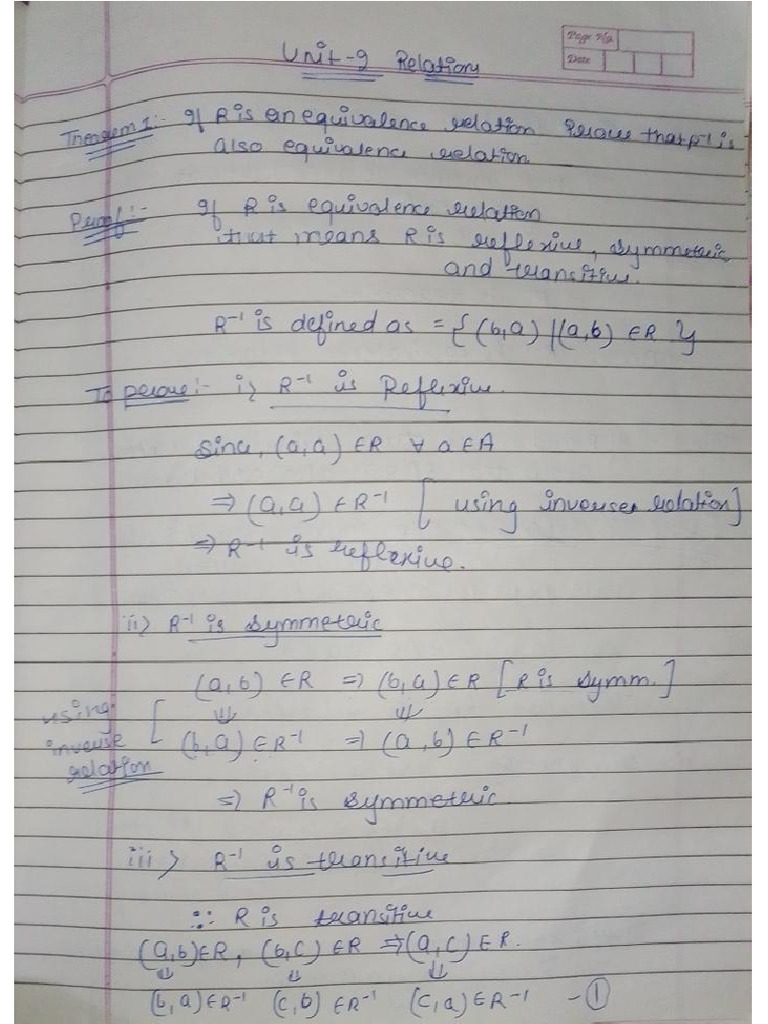 Page No.
Date
Unit-9 Relations
Theorem 1:- If R is an equivalence relation Prove that R⁻¹ is
also equivalence relation
Proof:- If R is equivalence relation
that means R is reflexive, symmetric
and transitive.
R⁻¹ is defined as = { (b,a) | (a,b) ∈R }
To prove:- i) R⁻¹ is Reflexive.
Since, (a,a) ∈R ∀ a∈A
⇒ (a,a) ∈R⁻¹ [ using inverse relation]
⇒ R⁻¹ is reflexive.
ii) R⁻¹ is symmetric
(a,b) ∈R ⇒ (b,a) ∈R [R is symm.]
⇓ ⇓
using inverse relation [ (b,a) ∈R⁻¹ ⇒ (a,b) ∈R⁻¹
⇒ R⁻¹ is symmetric.
iii) R⁻¹ is transitive
∵ R is transitive
(a,b)∈R, (b,c) ∈R ⇒(a,c) ∈R.
⇓ ⇓ ⇓
(b,a) ∈R⁻¹ (c,b) ∈R⁻¹ (c,a) ∈R⁻¹ -①